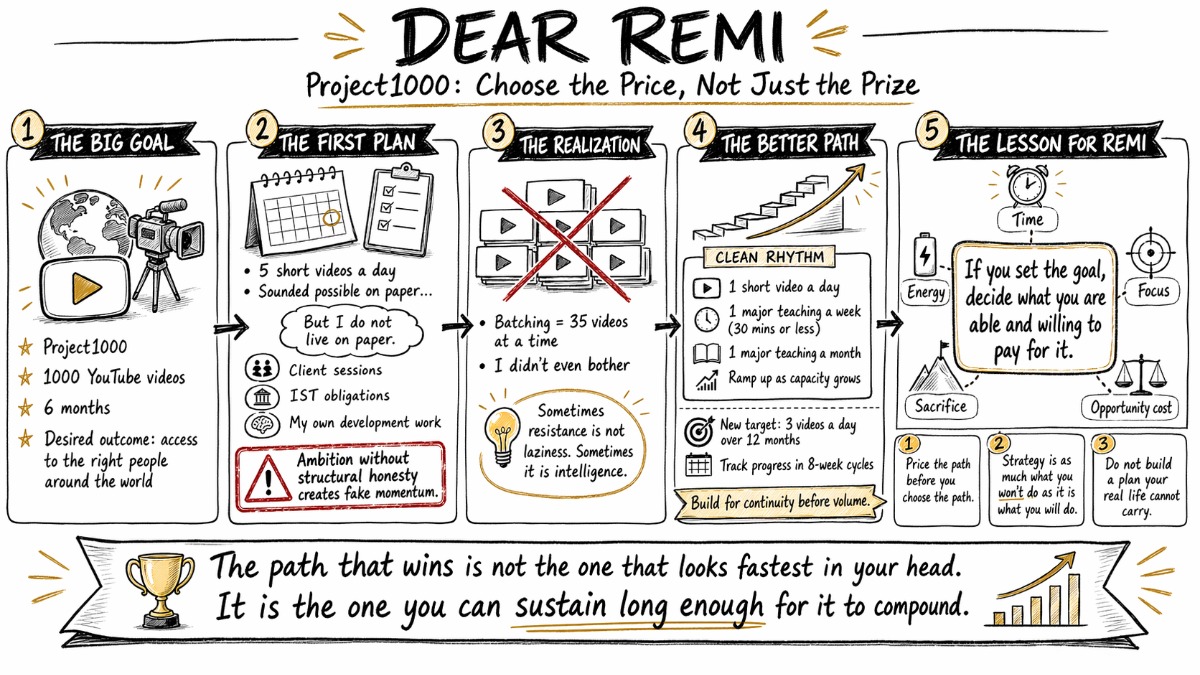 DEAR REMI
Project1000: Choose the Price, Not Just the Prize
1
THE BIG GOAL
Project1000
1000 YouTube videos
6 months
Desired outcome: access
to the right people
around the world
2
THE FIRST PLAN
1
• 5 short videos a day
• Sounded possible on paper...
But I do not
live on paper.
Client sessions
IST obligations
My own development work
Ambition without
structural honesty
creates fake momentum.
3
THE REALIZATION
• Batching = 35 videos
at a time
• I didn't even bother
Sometimes
resistance is not
laziness. Sometimes
it is intelligence.
4
THE BETTER PATH
CLEAN RHYTHM
1 short video a day
1 major teaching a week
(30 mins or less)
1 major teaching a month
Ramp up as capacity grows
New target: 3 videos a day
over 12 months
Track progress in 8-week cycles
Build for continuity before volume.
5
THE LESSON FOR REMI
Time
Energy
Focus
If you set the goal,
decide what you are
able and willing to
pay for it.
Sacrifice
Opportunity cost
1
Price the path
before you
choose the path.
2
Strategy is as
much what you
won't do as it is
what you will do.
3
Do not build
a plan your
real life cannot
carry.
The path that wins is not the one that looks fastest in your head.
It is the one you can sustain long enough for it to compound.